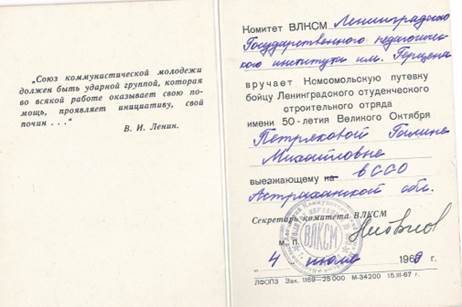 „Союз коммунистической молодежи
должен быть ударной группой, которая
во всякой работе оказывает свою по-
мощь, проявляет инициативу, свой
почин . . .“
В. И. Ленин.
Комитет ВЛКСМ Ленинградского
Государственного педагогичес-
кого института им. Герцена
вручает Комсомольскую путевку
бойцу Ленинградского студенческого
строительного отряда
имени 50-летия Великого Октября
Петряковой Галине
Михайловне
выезжающему на в ССО
Астраханской обл.
Секретарь комитета ВЛКСМ
М. П.
ВЛКСМ
4 июля 1969 г.
ЛФОПЗ Зак. 1169—25000 М-34200 15.III-67 г.